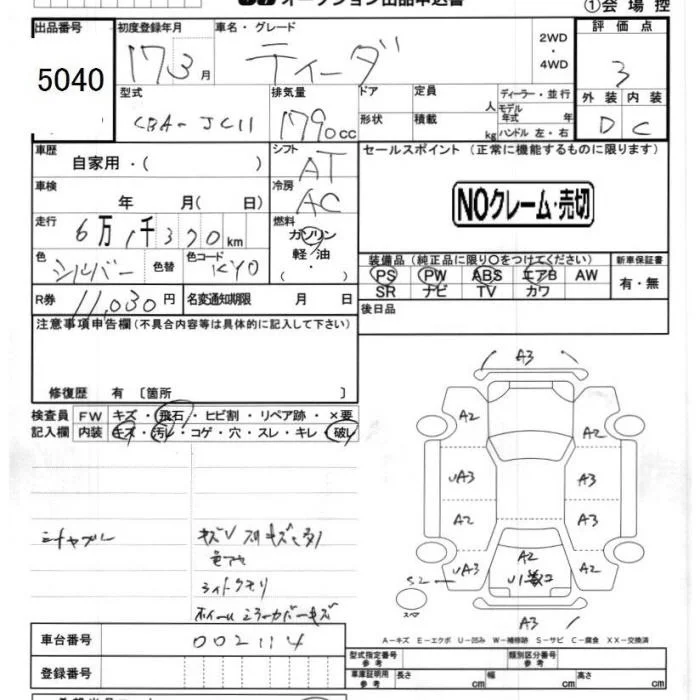 オークション出品申込書
①会場控
出品番号 初度登録年月 車名・グレード 2WD・4WD 評価点
5040 17 3月 ティーダ 3
型式 排気量 ドア 定員 人 ディーラー・並行 外装 内装
CBA-JC11 1790cc 形状 積載 kg モデル年式 年 ハンドル 左・右 D C
車歴 自家用・( ) シフト AT セールスポイント (正常に機能するものに限ります)
車検 年 月( 日) 冷房 AC NOクレーム・売切
走行 6万1千320km 燃料 ガソリン 軽油 ( ・ )
色 シルバー 色替 色コード KY0 装備品(純正品に限り○をつけてください) 新車保証書
PS PW ABS エアB AW 有・無
SR ナビ TV カワ
R券 11,030円 名変通知期限 月 日 後日品
注意事項申告欄(不具合内容等は具体的に記入して下さい)
修復歴 有 〔箇所 〕
検査員 FW キズ・飛石・ヒビ割・リペア跡・×要
記入欄 内装 キズ・汚レ・コゲ・穴・スレ・キレ・破レ
A3
A2 A2
UA3 A3
A2 A3
UA3 A2 A2
S2
スペア
A3
ライトクモリ
ホイールミラーカバーキズ
A-キズ E-エクボ U-凹み W-補修跡 S-サビ C-腐食 XX-交換済
車台番号 002114 型式指定番号 参考 類別区分番号 参考
登録番号 車庫証明用 参考 長さ cm 幅 cm 高さ cm